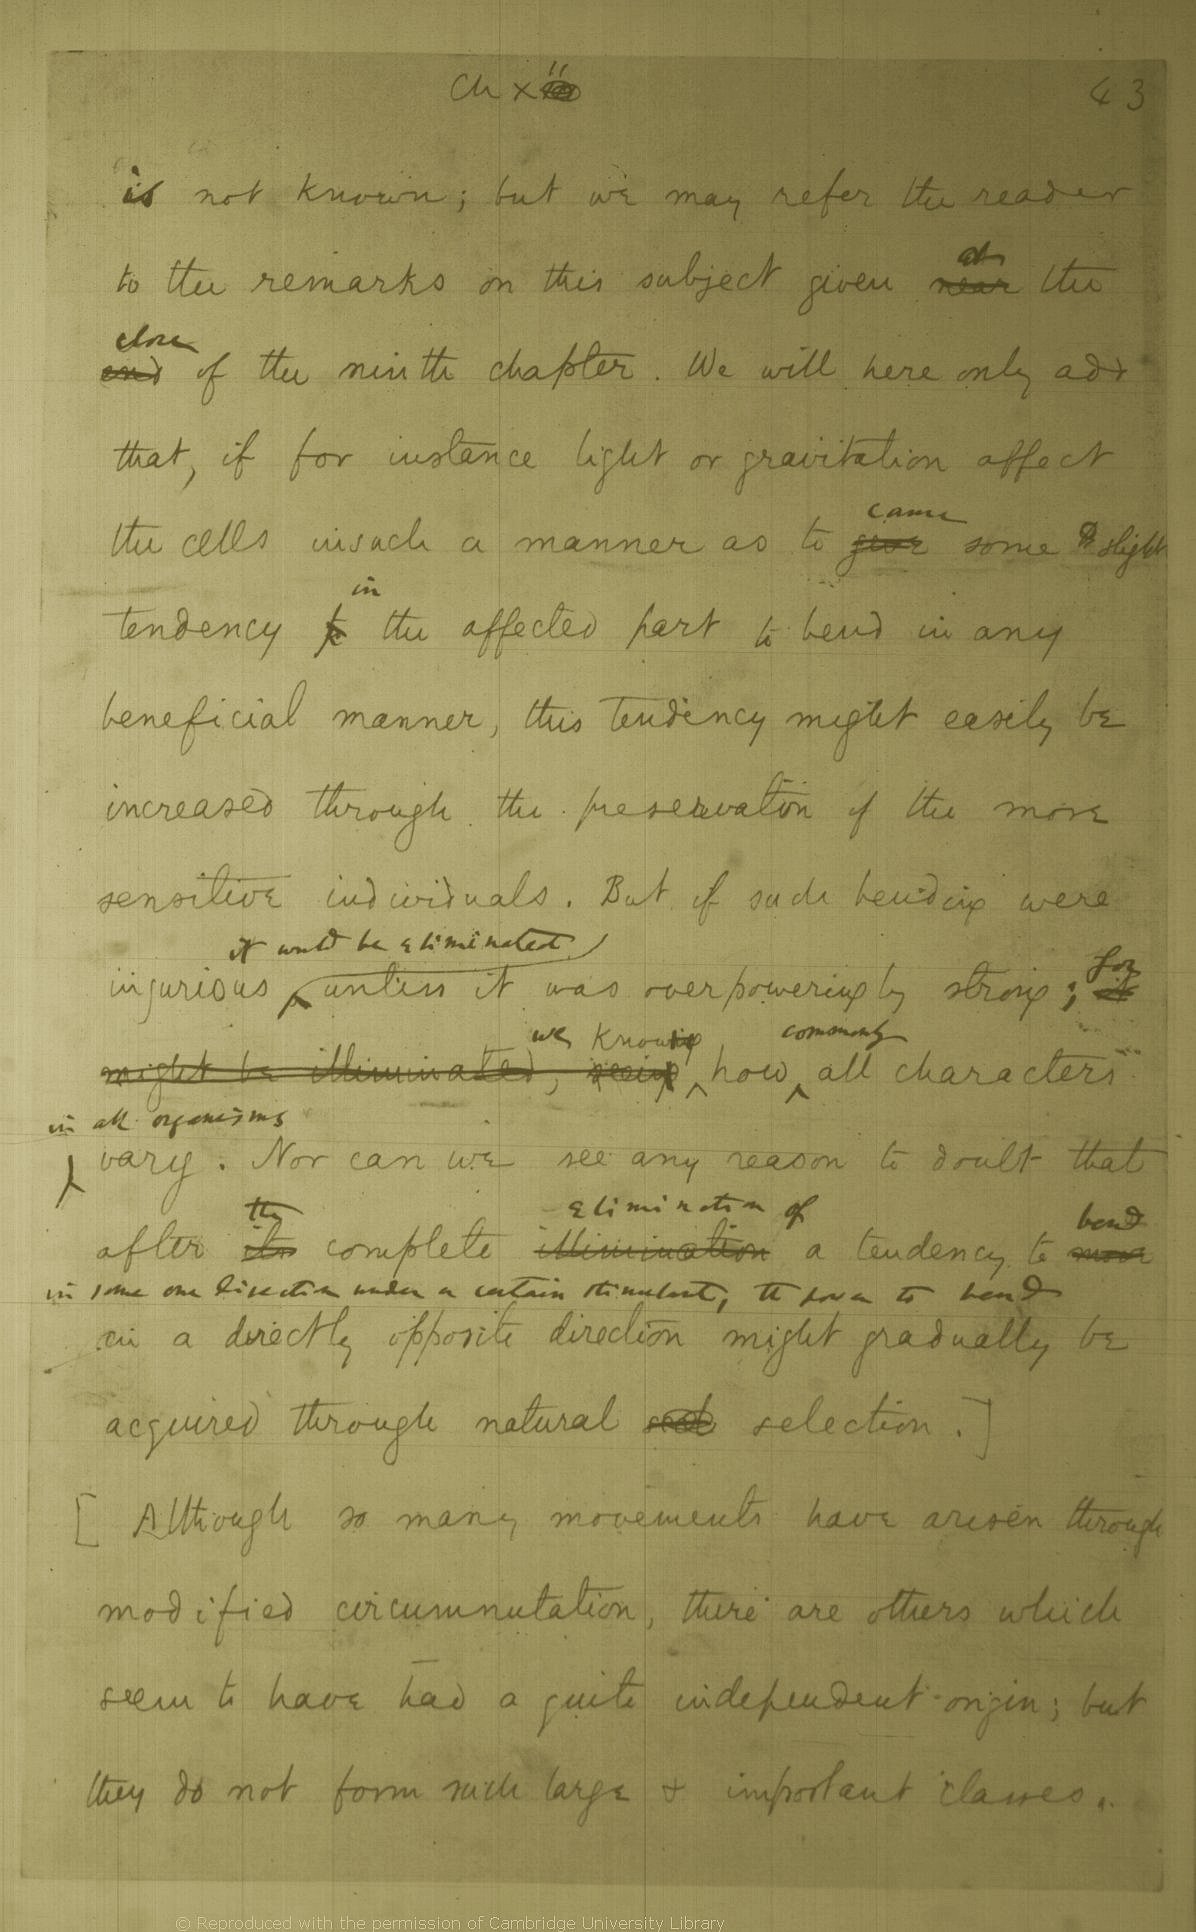 Ch XII
43
is not known; but we may refer the reader
at
to the remarks on this subject given near the
close
end of the ninth chapter. We will here only add
that, if for instance light or gravitation affect
the cells in such a manner as to give some slight
cause
in
tendency to the affected part to bend in any
beneficial manner, this tendency might easily be
increased through the preservation of the more
sensitive individuals. But if such bending were
it would be eliminated
injurious unless it was overpoweringly strong; it
for
we know commonly
might be illiminated, seeing how all characters
in all organisms
vary. Nor can we see any reason to doubt that
the elimination of bend
after its complete illimination a tendency to move
in some one direction under a certain stimulant, the power to bend
in a directly opposite direction might gradually be
acquired through natural selection.]
[Although so many movements have arisen through
modified circumnutation, there are others which
seem to have had a quite independent origin; but
they do not form such large & important classes.
© Reproduced with the permission of Cambridge University Library